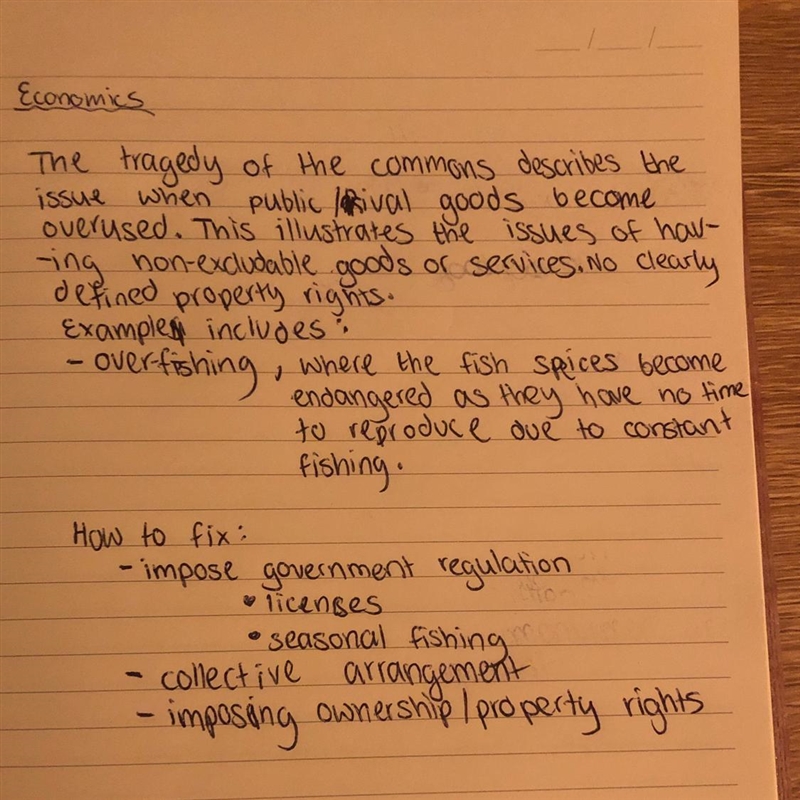 Economics
The tragedy of the commons describes the
issue when public/rival goods become
overused. This illustrates the issues of hav-
-ing non-excludable goods or services. No clearly
defined property rights.
Example includes:
- over-fishing, where the fish spices become
endangered as they have no time
to reproduce due to constant
fishing.
How to fix:
- impose government regulation
• licenses
• seasonal fishing
- collective arrangement
- imposing ownership/property rights